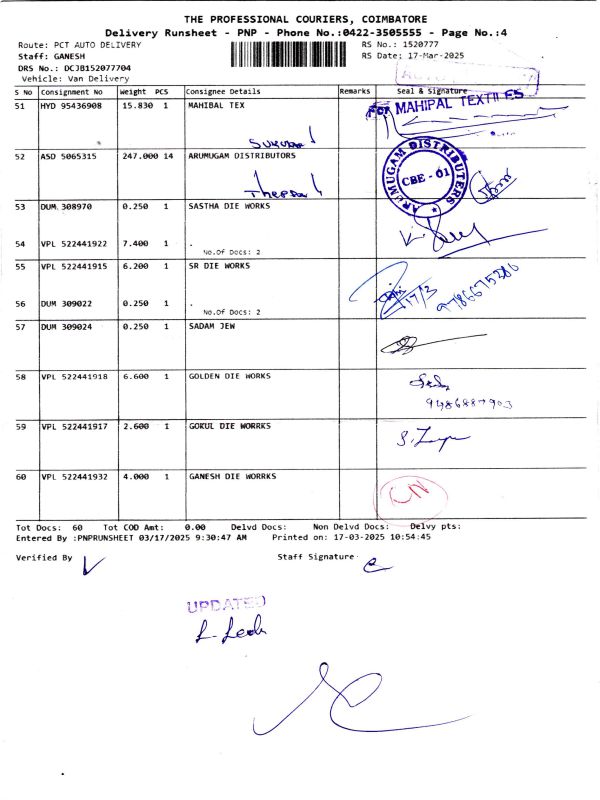 THE PROFESSIONAL COURIERS, COIMBATORE
Delivery Runsheet - PNP - Phone No.:0422-3505555 - Page No.:4
Route: PCT AUTO DELIVERY RS No.: 1520777
Staff: GANESH RS Date: 17-Mar-2025
DRS No.: DCJB152077704
Vehicle: Van Delivery
S No Consignment No Weight PCS Consignee Details Remarks Seal & Signature
51 HYD 95436908 15.830 1 MAHIBAL TEX
FOR MAHIPAL TEXTILES
52 ASD 5065315 247.000 14 ARUMUGAM DISTRIBUTORS
ARUMUGAM DISTRIBUTERS
CBE - 01
53 DUM 308970 0.250 1 SASTHA DIE WORKS
54 VPL 522441922 7.400 1 .
No.Of Docs: 2
55 VPL 522441915 6.200 1 SR DIE WORKS
17/3 9786675286
56 DUM 309022 0.250 1 .
No.Of Docs: 2
57 DUM 309024 0.250 1 SADAM JEW
58 VPL 522441918 6.600 1 GOLDEN DIE WORKS
9486887903
59 VPL 522441917 2.600 1 GOKUL DIE WORRKS
60 VPL 522441932 4.000 1 GANESH DIE WORRKS
CN
Tot Docs: 60 Tot COD Amt: 0.00 Delvd Docs: Non Delvd Docs: Delvy pts:
Entered By :PNPRUNSHEET 03/17/2025 9:30:47 AM Printed on: 17-03-2025 10:54:45
Verified By Staff Signature
UPDATED